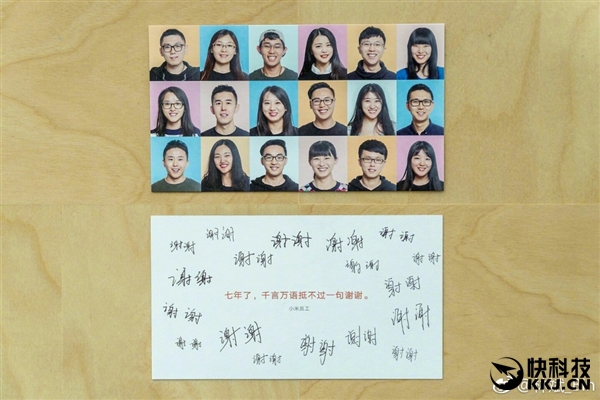 谢谢
谢谢
谢谢
谢谢
谢谢
谢谢
谢谢
谢谢
谢谢
谢谢
谢谢
七年了，千言万语抵不过一句谢谢。
小米员工
谢谢
谢谢
谢谢
谢谢
谢谢
谢谢
谢谢
谢谢
快科技
KKJ.CN